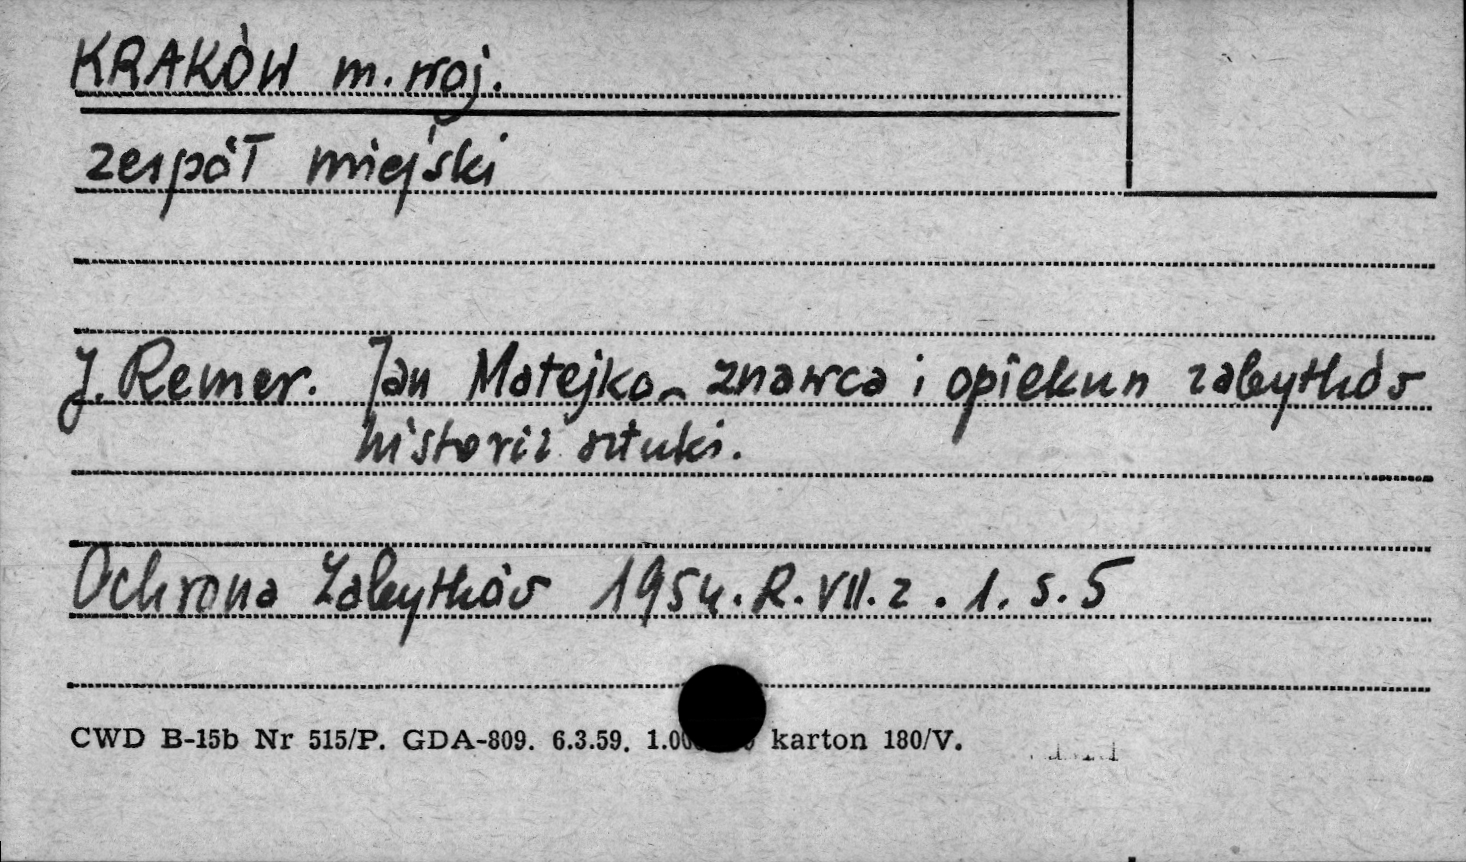 KRAKÓW m. woj.
zespół miejski
J. Remer. Jan Matejko - znawca i opiekun zabytków
historii sztuki.
Ochrona Zabytków 1954. R. VII. z. 1. s. 5
CWD B-15b Nr 515/P. GDA-809. 6.3.59. karton 180/V.